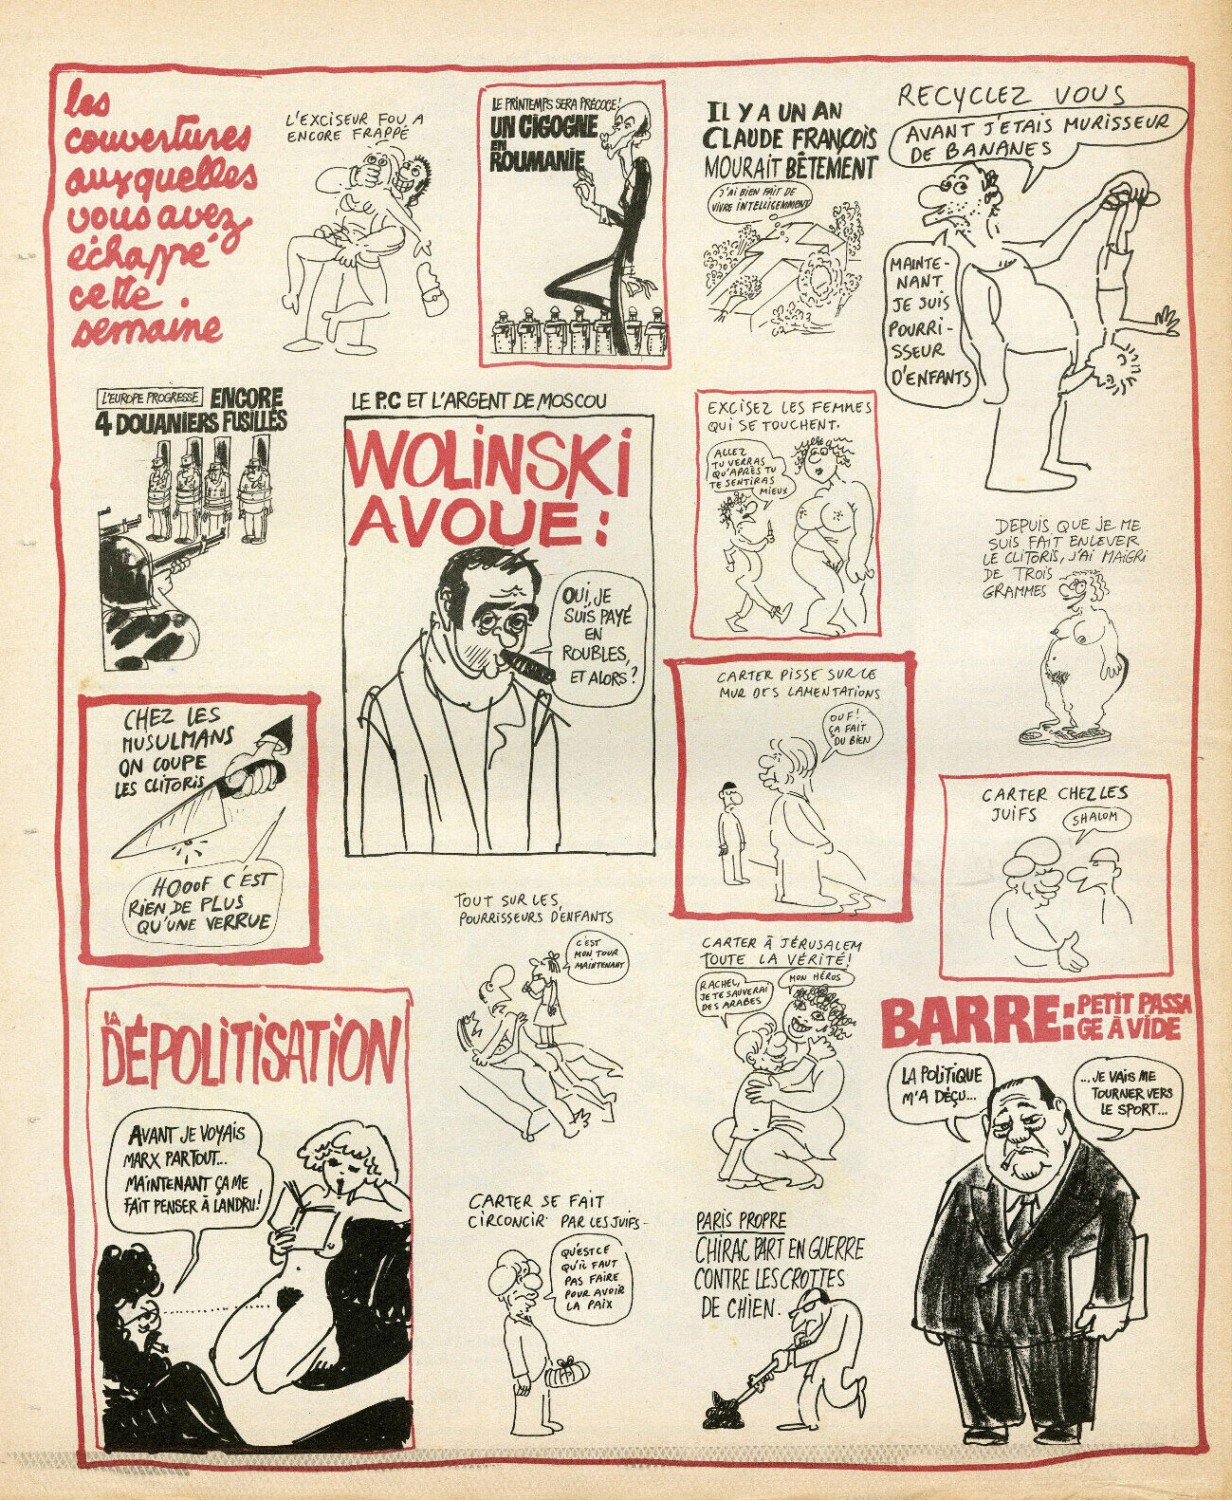 les
couvertures
auxquelles
vous avez
échappé
cette
semaine
L'EXCISEUR FOU A
ENCORE FRAPPÉ
LE PRINTEMPS SERA PRÉCOCE!
UN CIGOGNE
EN
ROUMANIE
IL Y A UN AN
CLAUDE FRANÇOIS
MOURAIT BÊTEMENT
J'AI BIEN FAIT DE
VIVRE INTELLIGEMMENT
RECYCLEZ VOUS
AVANT J'ETAIS MURISSEUR
DE BANANES
MAINTE-
NANT
JE SUIS
POURRI-
SSEUR
D'ENFANTS
L'EUROPE PROGRESSE
ENCORE
4 DOUANIERS FUSILLÉS
LE P.C ET L'ARGENT DE MOSCOU
WOLINSKI
AVOUE:
OUI, JE
SUIS PAYÉ
EN
ROUBLES,
ET ALORS?
EXCISEZ LES FEMMES
QUI SE TOUCHENT.
ALLEZ
TU VERRAS
QU'APRÈS TU
TE SENTIRAS
MIEUX
DEPUIS QUE JE ME
SUIS FAIT ENLEVER
LE CLITORIS, J'AI MAIGRI
DE TROIS
GRAMMES
CHEZ LES
MUSULMANS
ON COUPE
LES CLITORIS
HOOOF C'EST
RIEN DE PLUS
QU'UNE VERRUE
CARTER PISSE SUR LE
MUR DES LAMENTATIONS
OUF!
ÇA FAIT
DU BIEN
CARTER CHEZ LES
JUIFS
SHALOM
TOUT SUR LES
POURRISSEURS D'ENFANTS
C'EST
MON TOUR
MAINTENANT
CARTER À JÉRUSALEM
TOUTE LA VÉRITÉ!
RACHEL,
JE TE SAUVERAI
DES ARABES
MON HÉROS
LA
DÉPOLITISATION
AVANT JE VOYAIS
MARX PARTOUT...
MAINTENANT ÇA ME
FAIT PENSER À LANDRU!
CARTER SE FAIT
CIRCONCIR PAR LES JUIFS-
QU'EST CE
QU'IL FAUT
PAS FAIRE
POUR AVOIR
LA PAIX
PARIS PROPRE
CHIRAC PART EN GUERRE
CONTRE LES CROTTES
DE CHIEN.
BARRE: PETIT PASSA
GE À VIDE
LA POLITIQUE
M'A DÉÇU...
...JE VAIS ME
TOURNER VERS
LE SPORT...